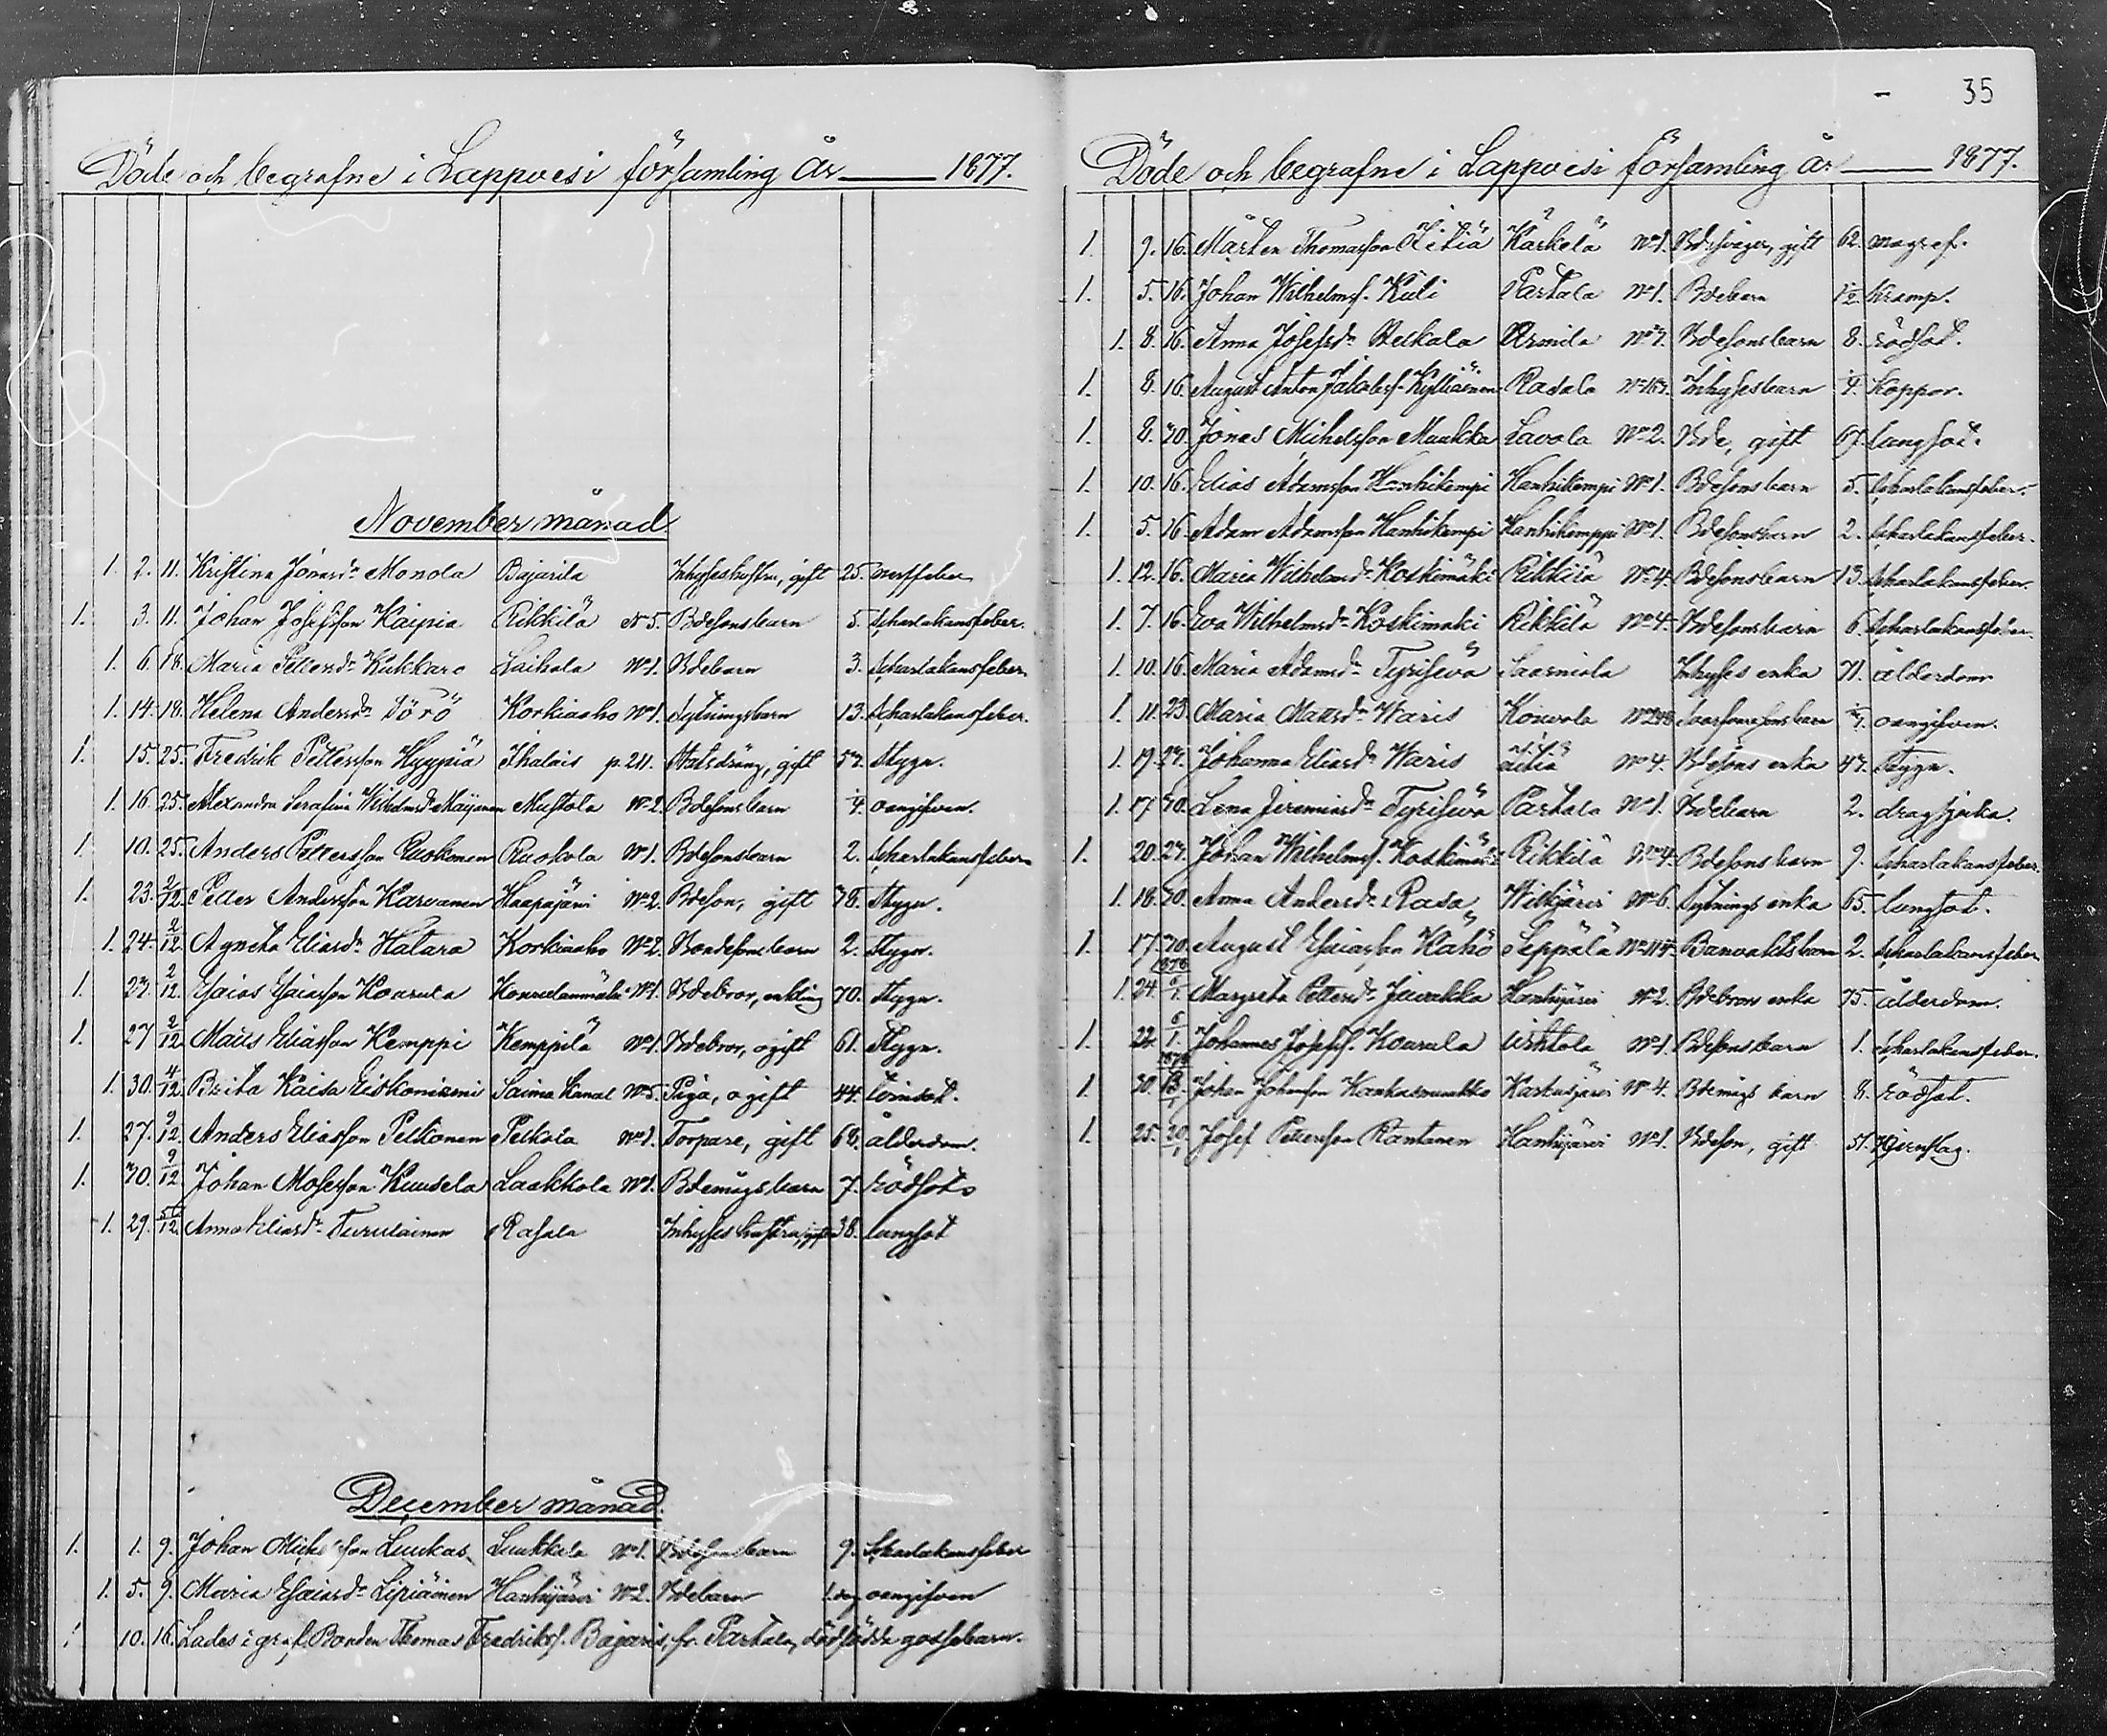 Döde och begrafne i Lappvesi församling År 1877.
November månad.
1. 2. 11. Kristina Jonasdr Monola Bajarila Inhyseshustru, gift 25. nerffeber
1. 3. 11. Johan Josefsson Kaipia Rikkilä N 5. Bdesonsbarn 5. Scharlakansfeber.
1. 6. 18. Maria Pettersdr Kukkaro Laihala No 1. Bdebarn 3. Scharlakansfeber.
1. 14. 18. Helena Andersdr Törö Korkiaaho No 1. Sytningsbarn 13. Scharlakansfeber.
1. 15. 25. Fredrik Pettersson Hyypiä Ihalais p. 211. Statsdräng, gift 57. Stygn.
1. 16. 25. Alexandra Serafina Wilhelmsdr Maijanen Mustola No 2. Bdesonsbarn oangifven.
1. 10. 25. Anders Pettersson Ruokonen Ruohola No 1. Bdesonsbarn 2. Scharlakansfeber
1. 23. 2/12. Petter Andersson Karvanen Haapajärvi No 2. Bdeson, gift 78. Stygn.
1. 24. 2/12. Agneta Eliasdr Hatara Korkiaaho No 2. Bondesonsbarn 2. Stygn.
1. 27. 2/12. Esaias Esaiasson Kourula Kourulanmäki No 1. Bdebror, enkling 70. Stygn.
1. 27 2/12. Matts Eliasson Kemppi Kemppilä No 1. Bdebror, ogift 61. Stygn.
1. 30. 4/12. Brita Kaisa Saima Kanal No 5. Piga, ogift 44. tvinsot.
1. 27. 9/12. Anders Eliasson Peltonen Pelkola No 1. Torpare, gift 68. ålderdom.
1. 30. 9/12. Johan Mosesson Kuusela Laakkola No 1. Bdemågsbarn 7. rödsot
1. 29. /12. Anna Eliasdr Turulainen Rasala Inhyses hustru, gift 38. lungsot
December månad.
1. 1. 9. Johan Michelsson Luukas Luukkala No 1. Bdesonsbarn 9. Scharlakansfeber
1. 5. 9. Maria Esaiasdr Lipiäinen Hanhijärvi No 2. Bdebarn 1 dag oangifven
1. 10. 16. Lades i graf, Bonden Thomas Fredrikss. Bajaris, fr. Partala, dödfödda gossebarn.
35
Döde och begrafne i Lappvesi församling År 1877.
1. 9. 16. Mårten Thomasson Äitiä Kärkelä No 1. Bdesvåger, gift 62. magref.
1. 5. 16. Johan Wilhelmss. Kuli Partala No 1. Bdebarn 1/2. Kramp.
1. 8. 16. Anna Josefsdr Armila No 7. Bdesonsbarn 8. rödsot.
1. 8. 16. August Anton Jakobss. Kylliäinen Rasala Inhysesbarn Koppor.
1. 8. 30. Jonas Michelsson Muukka Lavola No 2. Bde, gift 67. lungsot.
1. 10. 16. Elias Adamsson Hanhikempi Hanhikempi No 1. Bdesonsbarn 5. Scharlakansfeber.
1. 5. 16. Adam Adamsson Hanhikempi Hanhikemppi No 1. Bdesonsbarn 2. Scharlakansfeber.
1. 12. 16. Maria Wilhelmsdr Koskimäki Rikkilä No 4. Bdesonsbarn 13. Scharlakansfeber.
1. 7. 16. Eva Wilhelmsdr Koskimäki Rikkilä No 4. Bdesonsbarn 6. Scharlakansfeber.
1. 10. 16. Maria Adamsdr Tyrisevä Saarniala Inhyses enka 71. ålderdom
1. 11. 23. Maria Mattsdr Waris Kourola oangifven.
1. 19. 27. Johanna Eliasdr Waris Äitiä No 4. Bdesons enka 47. Stygn.
1. 17 30. Lena Jeremiasdr Tyrisevä Partala No 1. Bdebarn 2. dragsjuka.
1. 20. 27. Johan Wilhelmss. Koskimäki Rikkilä No 4. Bdesonsbarn 9. Scharlakansfeber.
1. 18. 30. Anna Andersdr Rasa Wilkjärvi No 6. Sytnings enka 65. lungsot.
1. 17. 30. August Esaiasson Kähö Seppälä No 114. Banvaktsbarn 2. Scharlakansfeber
1. 24. 1878 6/1. Margreta Pettersdr Juvakka Hanhijärvi No 2. Bdebrors enka 75. ålderdom.
1. 22. 6/1. Johannes Josefss. Kourula Uihtola No 1. Bdesonsbarn 1. Scharlakansfeber.
1. 30. 1878 13/1. Johan Johansson Kankasmuukko Karhusjärvi No 4. Bdemågs barn 8. rödsot.
1. 25. 20/1 Josef Pettersson Rantanen Hanhijärvi No 1. Bdeson, gift 51. Hjernslag.